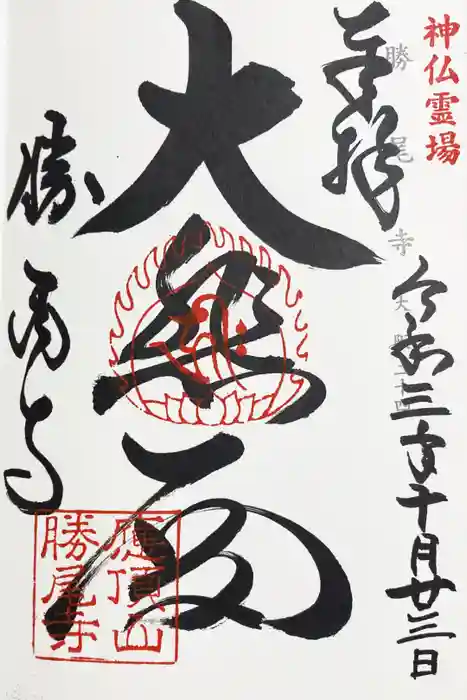 神仏霊場
勝尾寺
奉拝
令和三年十月廿三日
大無
勝尾寺
應頂山
勝尾寺